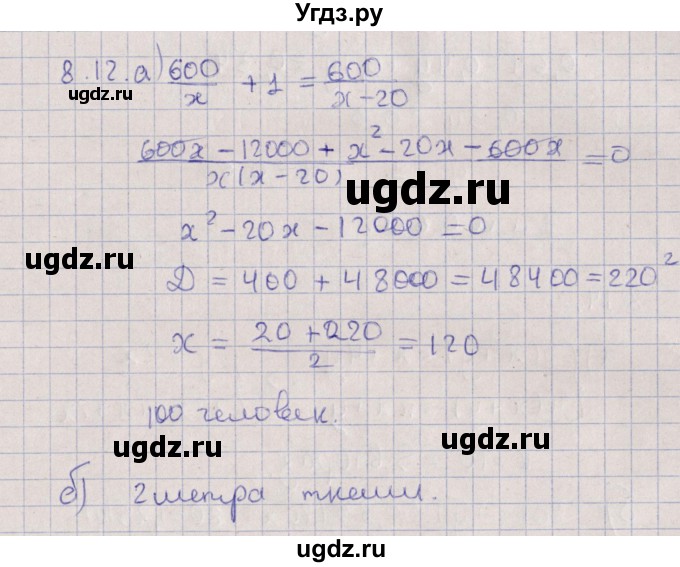 Угдз.ру
8.12.а) 600/x + 1 = 600/(x-20)
ugdz.ru ugdz.ru
(600x - 12000 + x² - 20x - 600x)/(x(x-20)) = 0
ugdz.ru
x² - 20x - 12000 = 0
ugdz.ru
Д = 400 + 48000 = 48400 = 220²
x = (20 + 220)/2 = 120
100 человек.
ugdz.ru ugdz.ru
б) 2 метра ткани.
ugdz.ru